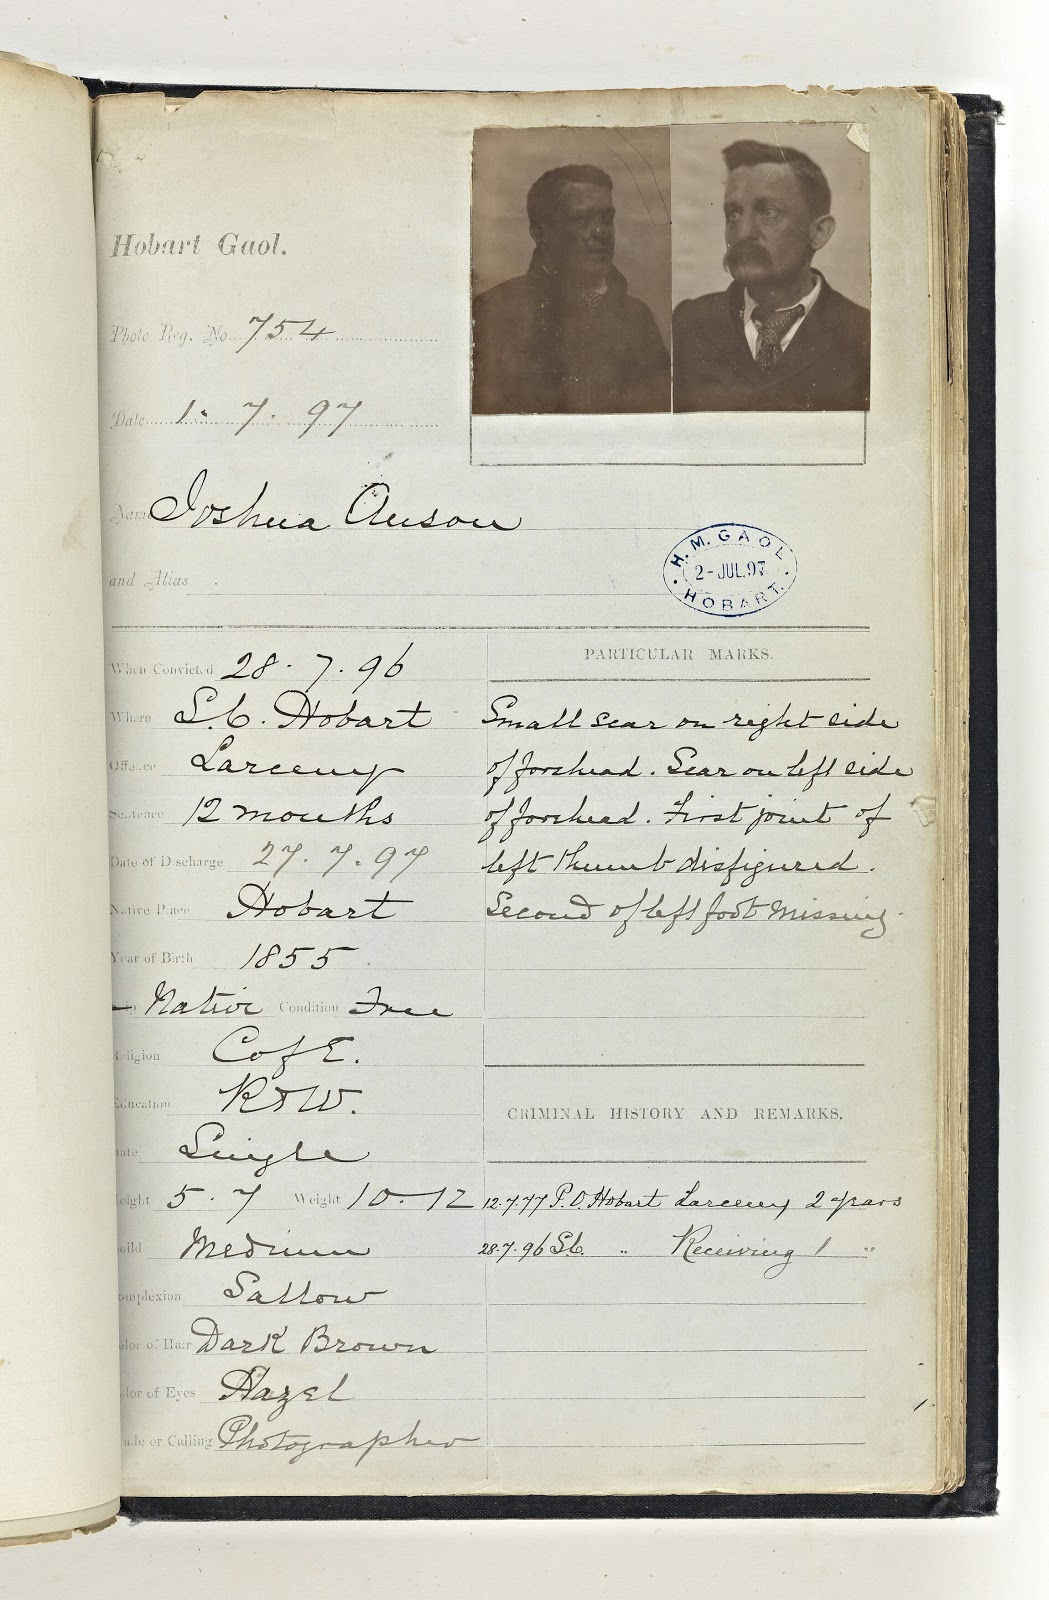 Hobart Gaol.
Photo Reg. No. 754
Date 1. 7. 97
Name Joshua Anson
and Alias
H. M. GAOL
2-JUL.97
HOBART.
When Convicted 28. 7. 96
Where S.C. Hobart
Offence Larceny
Sentence 12 months
Date of Discharge 27. 7. 97
Native Place Hobart
Year of Birth 1855
Native Condition Free
Religion C of E.
Education R & W.
State Single
Height 5. 7 Weight 10. 12
Build Medium
Complexion Sallow
Color of Hair Dark Brown
Color of Eyes Hazel
Trade or Calling Photographer
PARTICULAR MARKS.
Small scar on right side
of forehead. Scar on left side
of forehead. First joint of
left thumb disfigured.
Second of left foot missing.
CRIMINAL HISTORY AND REMARKS.
12.7.77 P.O. Hobart Larceny 2 years
28.7.96 S.C. " Receiving 1 "